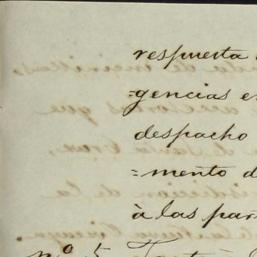 respuesta
=gencias e
despacho
=mento d
à las par
nº 5